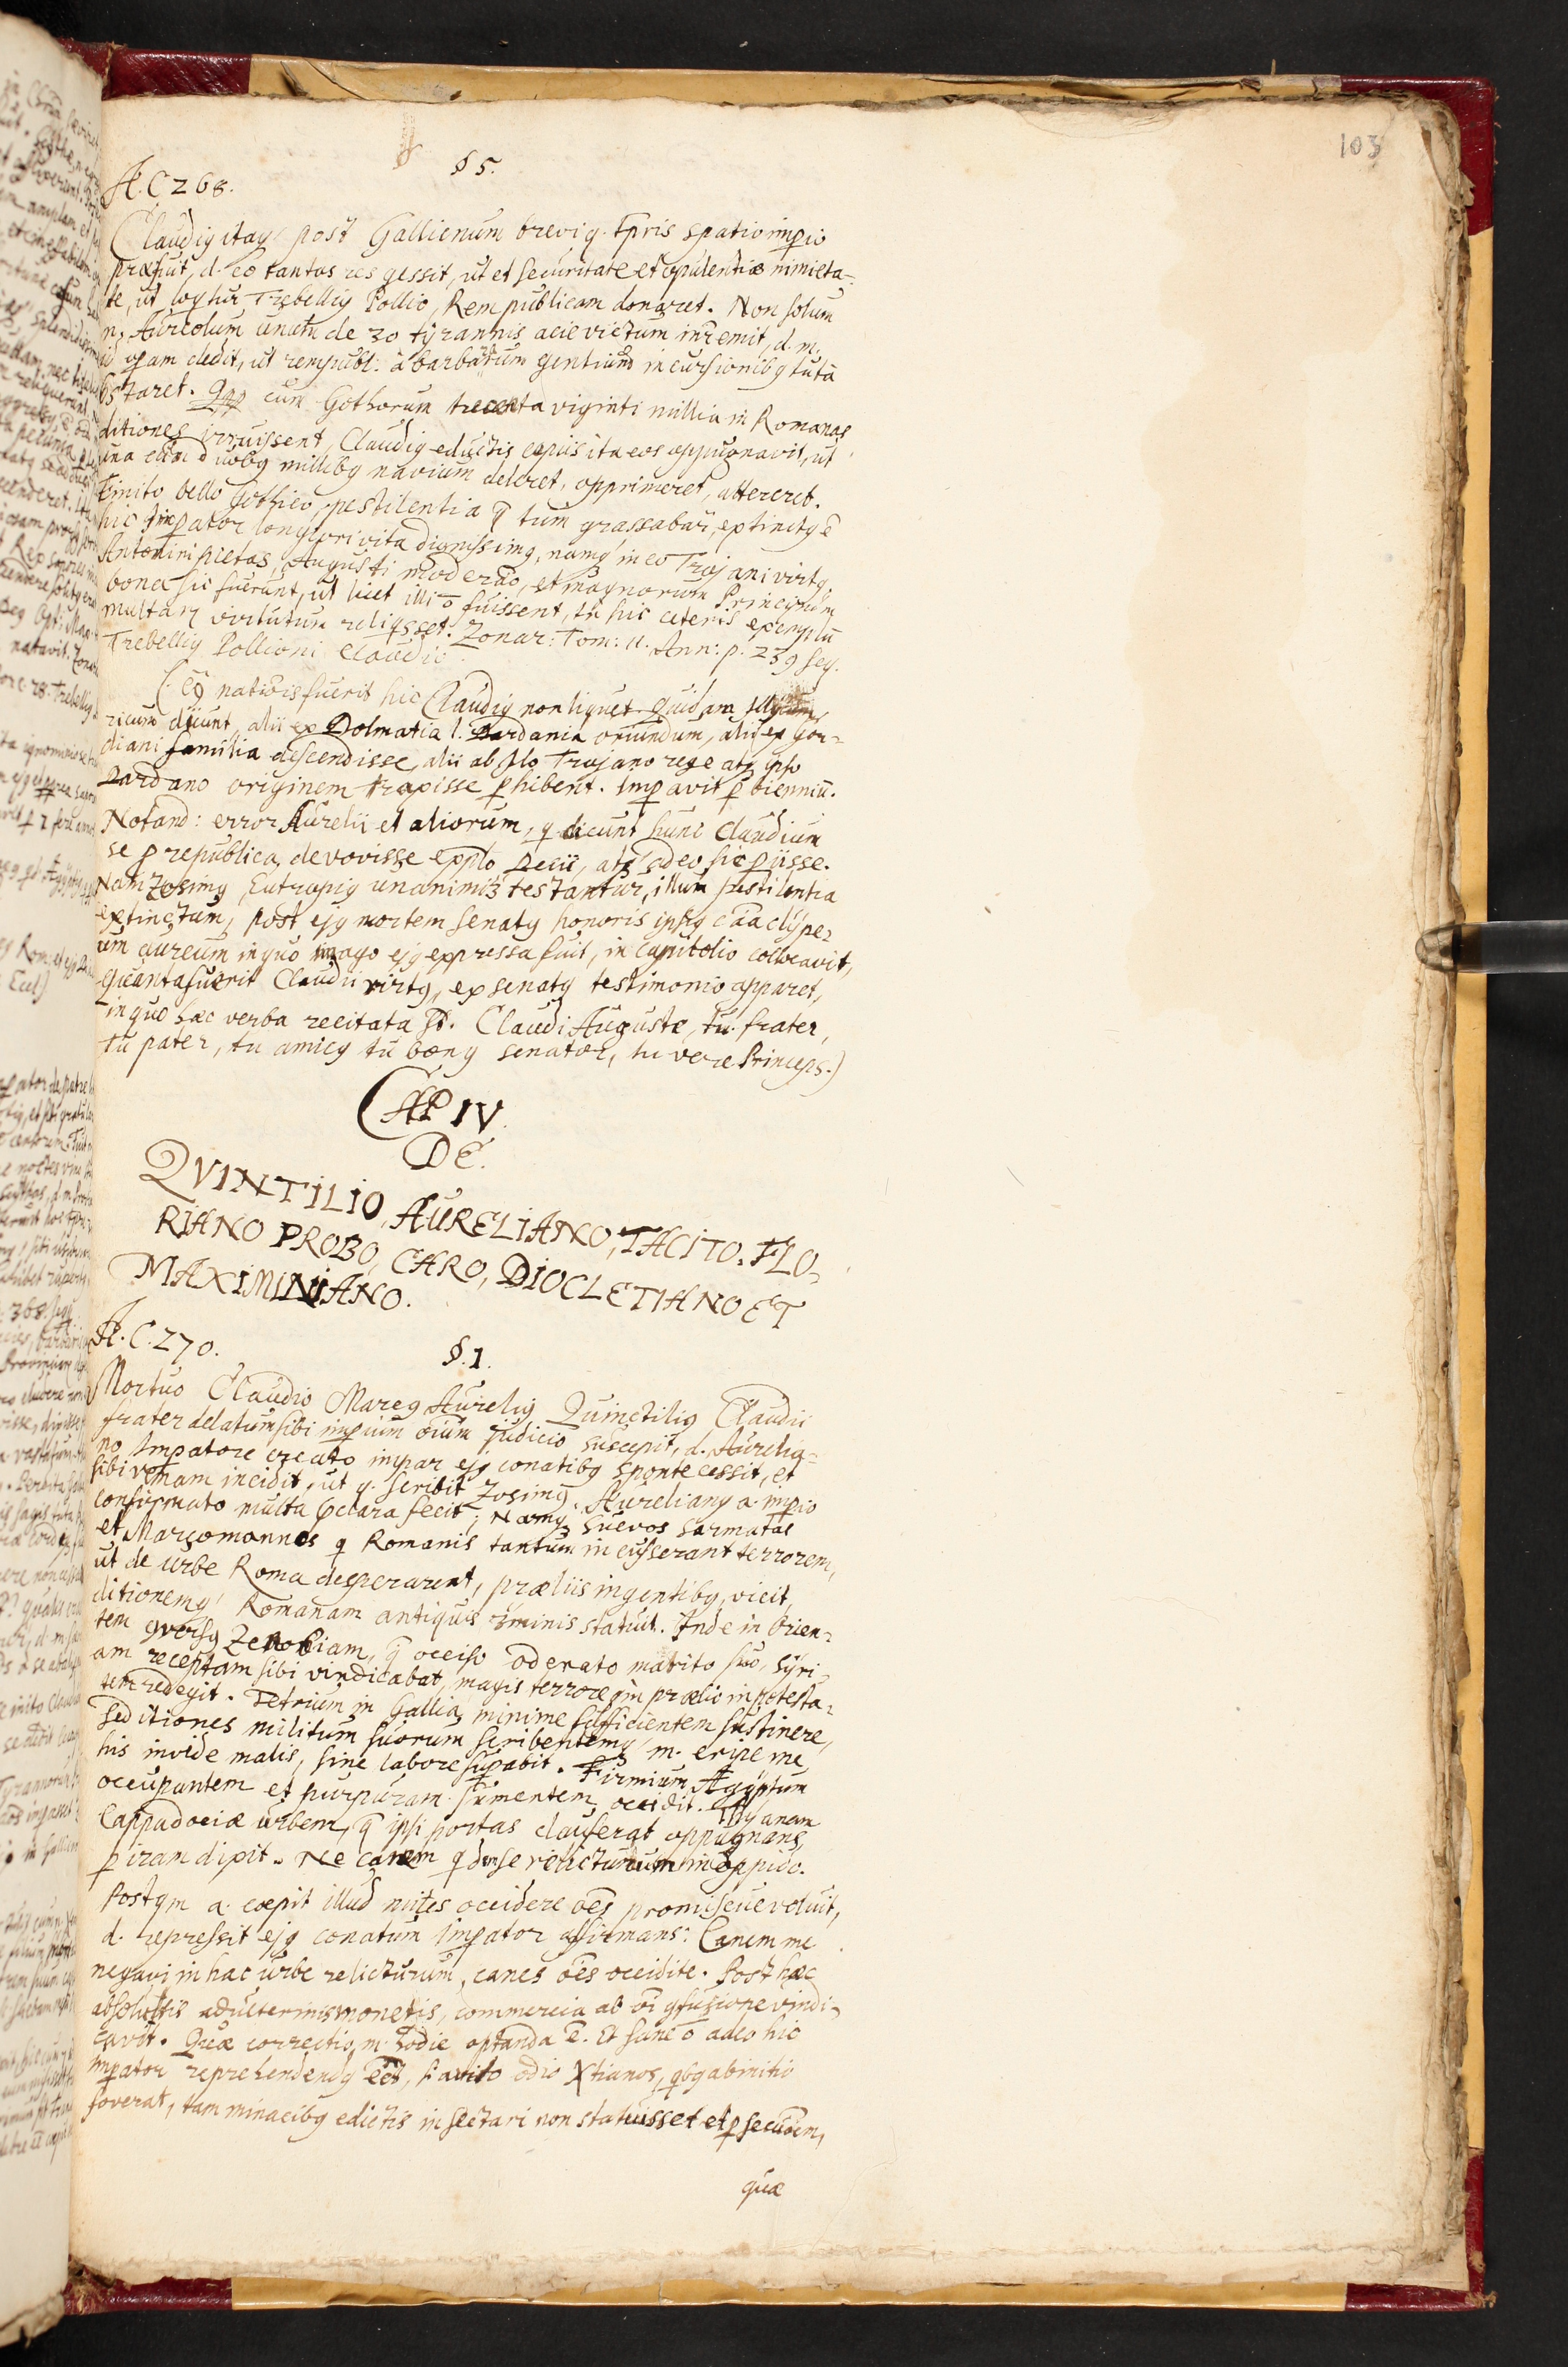 103
§ 5.
A. C 268.
Claudig itaq post Gallienum brevi q. tpris spatio impio
præfuit, d. eo tantas res gessit, ut et securitate et opulentiæ nimieta-
te, ut loqtur Trebellig Pollio, Rempublicam donaret. Non solum
n. Aureolum unum de 30 tyrannis acie victum inremit, d. m.
id opam dedit, ut rempubl: â barbarum gentium incursionibg tuta
staret. Qpp cum Gothorum trecenta viginti millia in Romanas
ditiones irruissent, Claudig eductis copiis ita eos oppugnavit, ut
una cum duobg millibg navium deleret, opprimeret, attereret.
Finito bello Gothico, pestilentia q tum grassabar, extinctg ē
hic Impator longiori vita dignissimg, namq in eo Trajani virtg,
Antonini pietas, Augusti moderao, et magnorum Principum
bona sic fuerunt, ut licet illi ō fuissent, tn hic ceteris exemplū
multarz virtutum reliqsset. Zonar: Tom: 11. Ann: p. 239 seq.
Trebellig Pollioni Claudio.
(Cuj nationis fuerit hic Claudig non liquet quidam Illy
ricum dicunt, alii ex Dolmatia l. Dardania oriundum, alii ex Gor-
diani familia descendisse, alii ab Ilo Trojano rege atq ipso
Dardano originem traxisse phibent. Impavit p biennium.
Notand: error Aurelii et aliorum, q dicunt hunc Claudium
se p republica devovisse explo Decii, atq adeo sic piisse.
Nam Zosimg, Eutropig unanimiter testantur, illum pestilentia
extinctum, post ejg mortem senatg honoris ipsig caa clype-
um aureum in quo imago ejg expressa fuit, in Capitolio collocavit,
Quanta fuerit Claudii virtg, ex senatg testimonio apparet,
in quo hæc verba recitata st. Claudi Auguste, tu frater,
tu pater, tu amicg tu bong senator, tu vere Princeps.)
CAP IV.
DE.
QVINTILIO, AURELIANO, TACITO. FLO-
RIANO PROBO, CARO, DIOCLETIANO ET
MAXIMINIANO.
A. C. 270.
§. 1.
Mortuo Claudio Marcg Aurelig Quinctilig Claudii
frater delatum sibi impium oium judicio suscepit, d. Aurelia-
no Impatore creato impar ejg conatibg sponte cessit, et
sibi venam incidit, ut q. scribit Zosimg. Aureliang a. impio
confirmato multa pclara fecit; Namq Suevos Sarmatas
et Marcomannos q Romanis tantum incusserant terrorem,
ut de urbe Roma desperarent, præliis ingentibg vicit,
ditionemq Romanam antiquis terminis statuit. Inde in Orien-
tem versg Zenobiam, q occiso Odenato marito suo, Syri-
am receptam sibi vindicabat, magis terrore qm prælio in potesta-
tem redegit. Tetricum in Gallia, minime sufficientem sustinere,
seditiones militum suorum scribentemq m. eripe me
his invide malis, sine labore supabit. Firmium Ægyptum
occupantem et purpuram sumentem, occidit. Thyanam
Cappadociæ urbem, q ipsi portas clauserat oppugnans,
p iram dixit. Ne canem qdem se relicturum in oppido.
Postqm a. cœpit illud mites occidere ões promiscue voluit,
d. repressit ejg conatum Impator affirmans: Canem me
negavi in hac urbe relicturum, canes ões occidite. Post hæc
absolutis adulterinis monetis, commercia ab õi qfusione vindi-
cavit. Quæ correctio m. hodie optanda ē. Et sane ō adeo hic
Impator reprehendendg eet, si avito odio Xtianos, qbg ab initio
foverat, tam minacibg edictis insectari non statuisset et psecuõem,
quæ